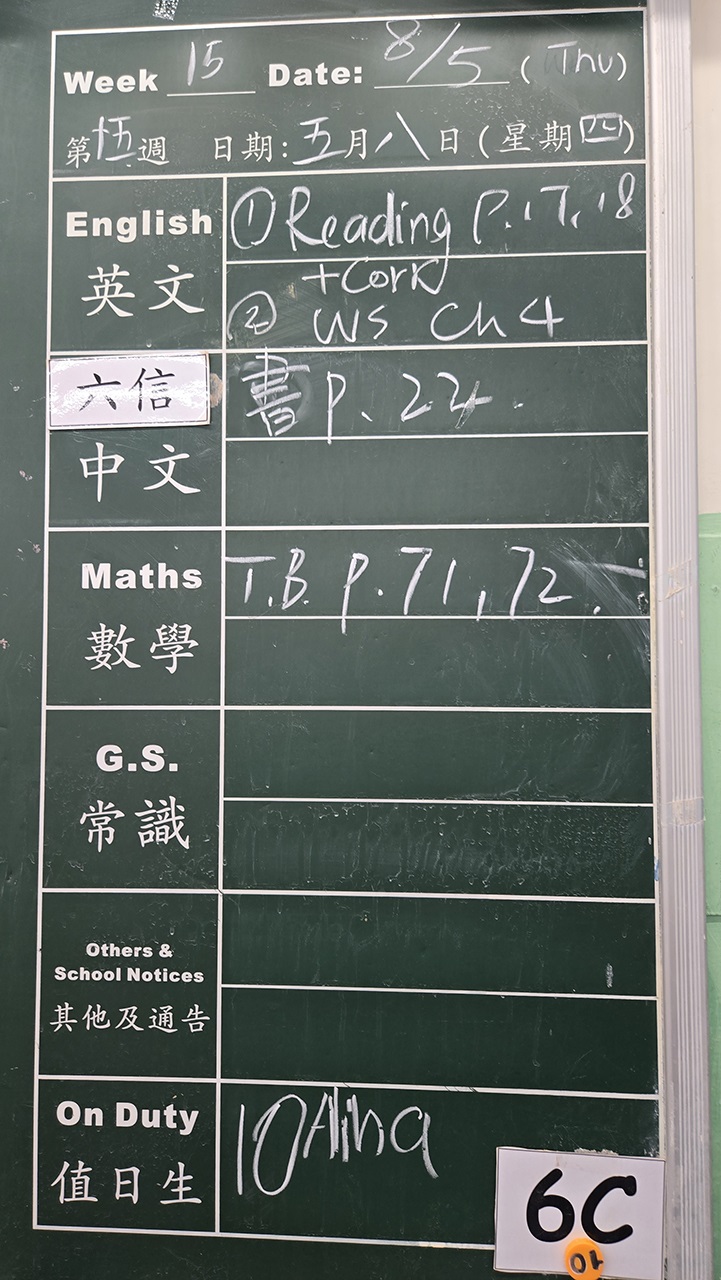 Week 15 Date: 8/5 (Thu)
第十五週 日期:五月八日(星期四)
English
英文
① Reading P.17,18
+Corr
② WS Ch 4
六信
中文
書 P. 22.
Maths
數學
T.B. P. 71, 72.
G.S.
常識
Others &
School Notices
其他及通告
On Duty
值日生
10 Alina
6C